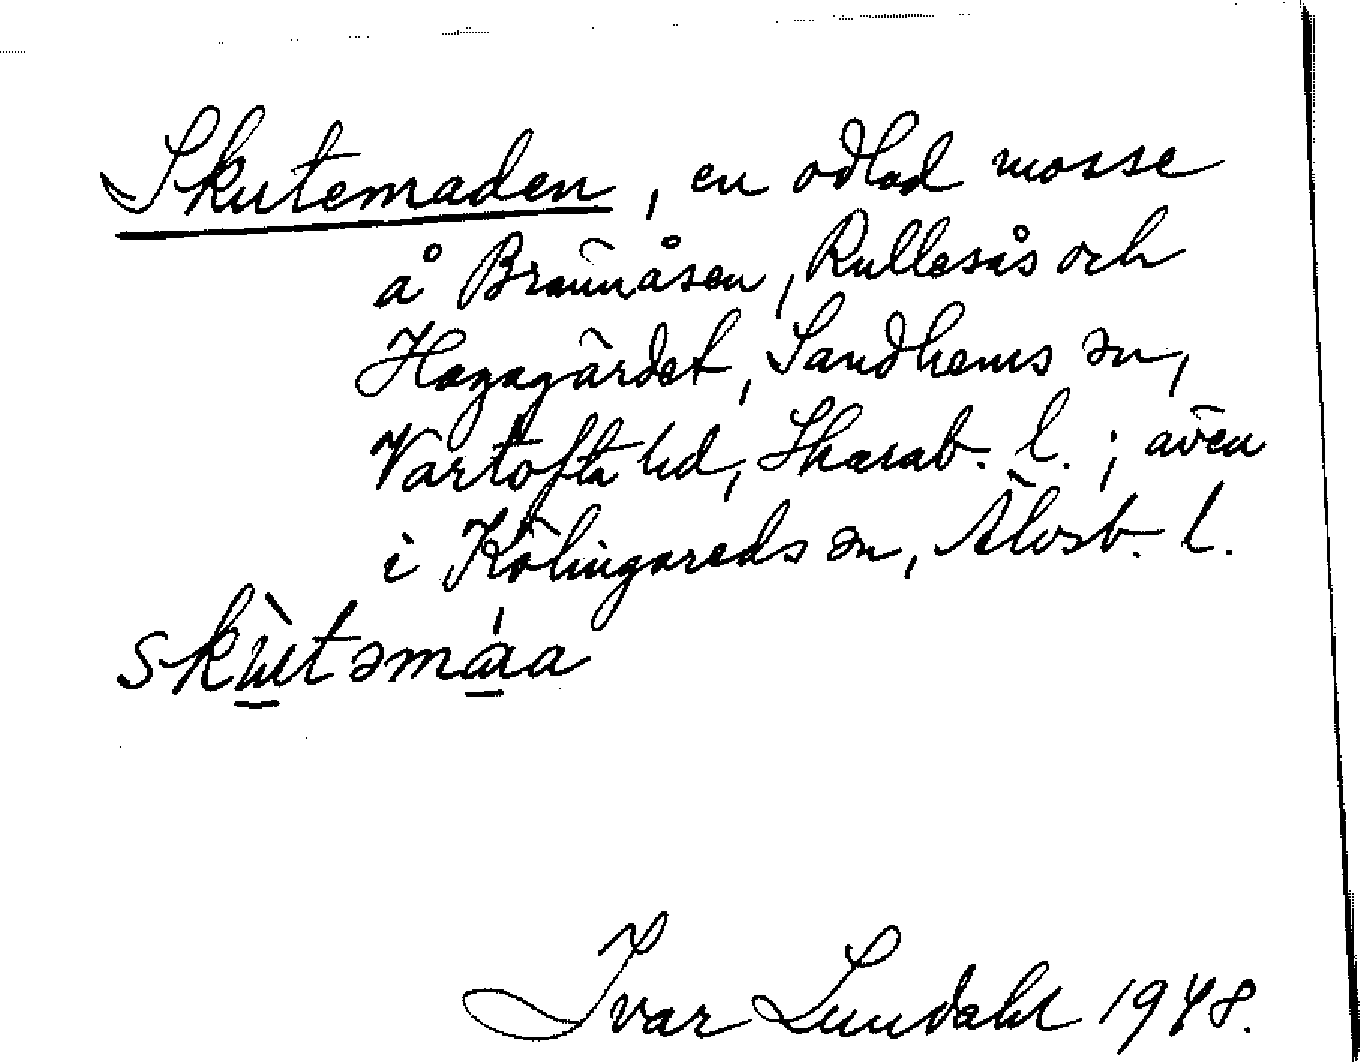 Skutemaden, en odlad mosse
å Brännåsen, Rullesås och
Hagagärdet, Sandhems sn,
Vartofta hd, Skarab. l.; även
i Kölingareds sn, Älvsb. l.
skùtəmáa
Ivar Lundahl 1948.